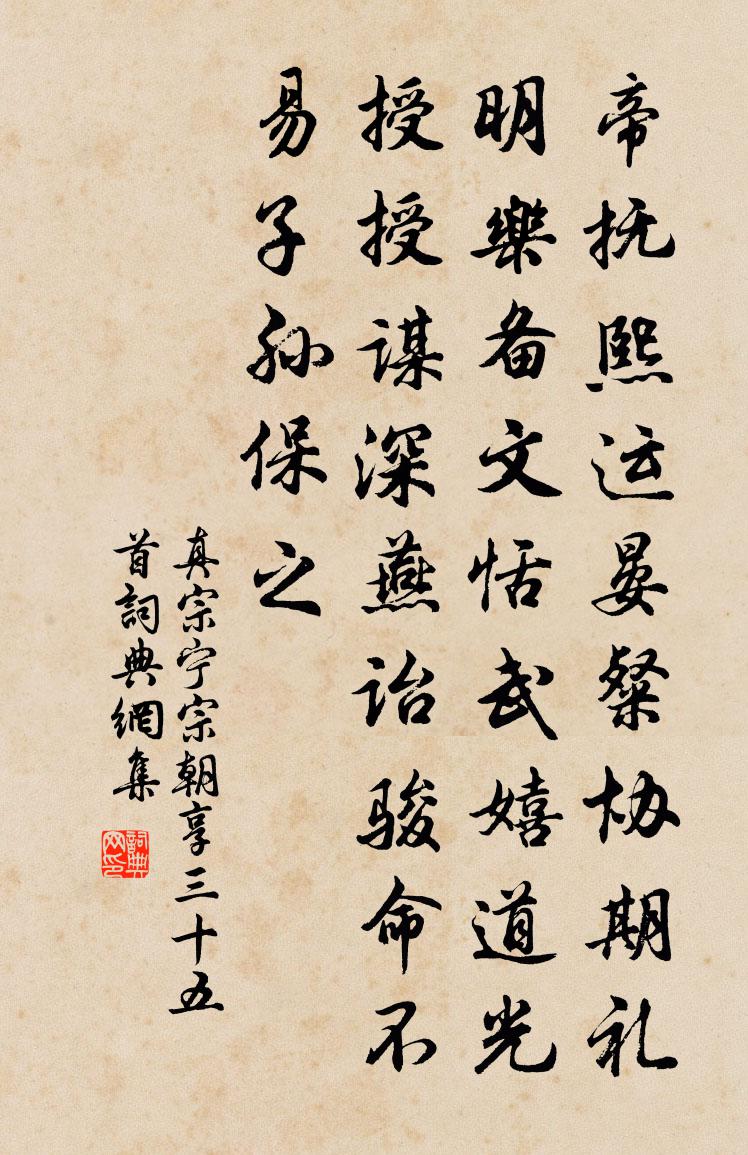 帝抚熙运晏粲协期礼
明樂备文恬武嬉道光
授授谋深燕诒骏命不
易子孙保之
真宗宁宗朝享三十五
首詞典網集
詞典网印